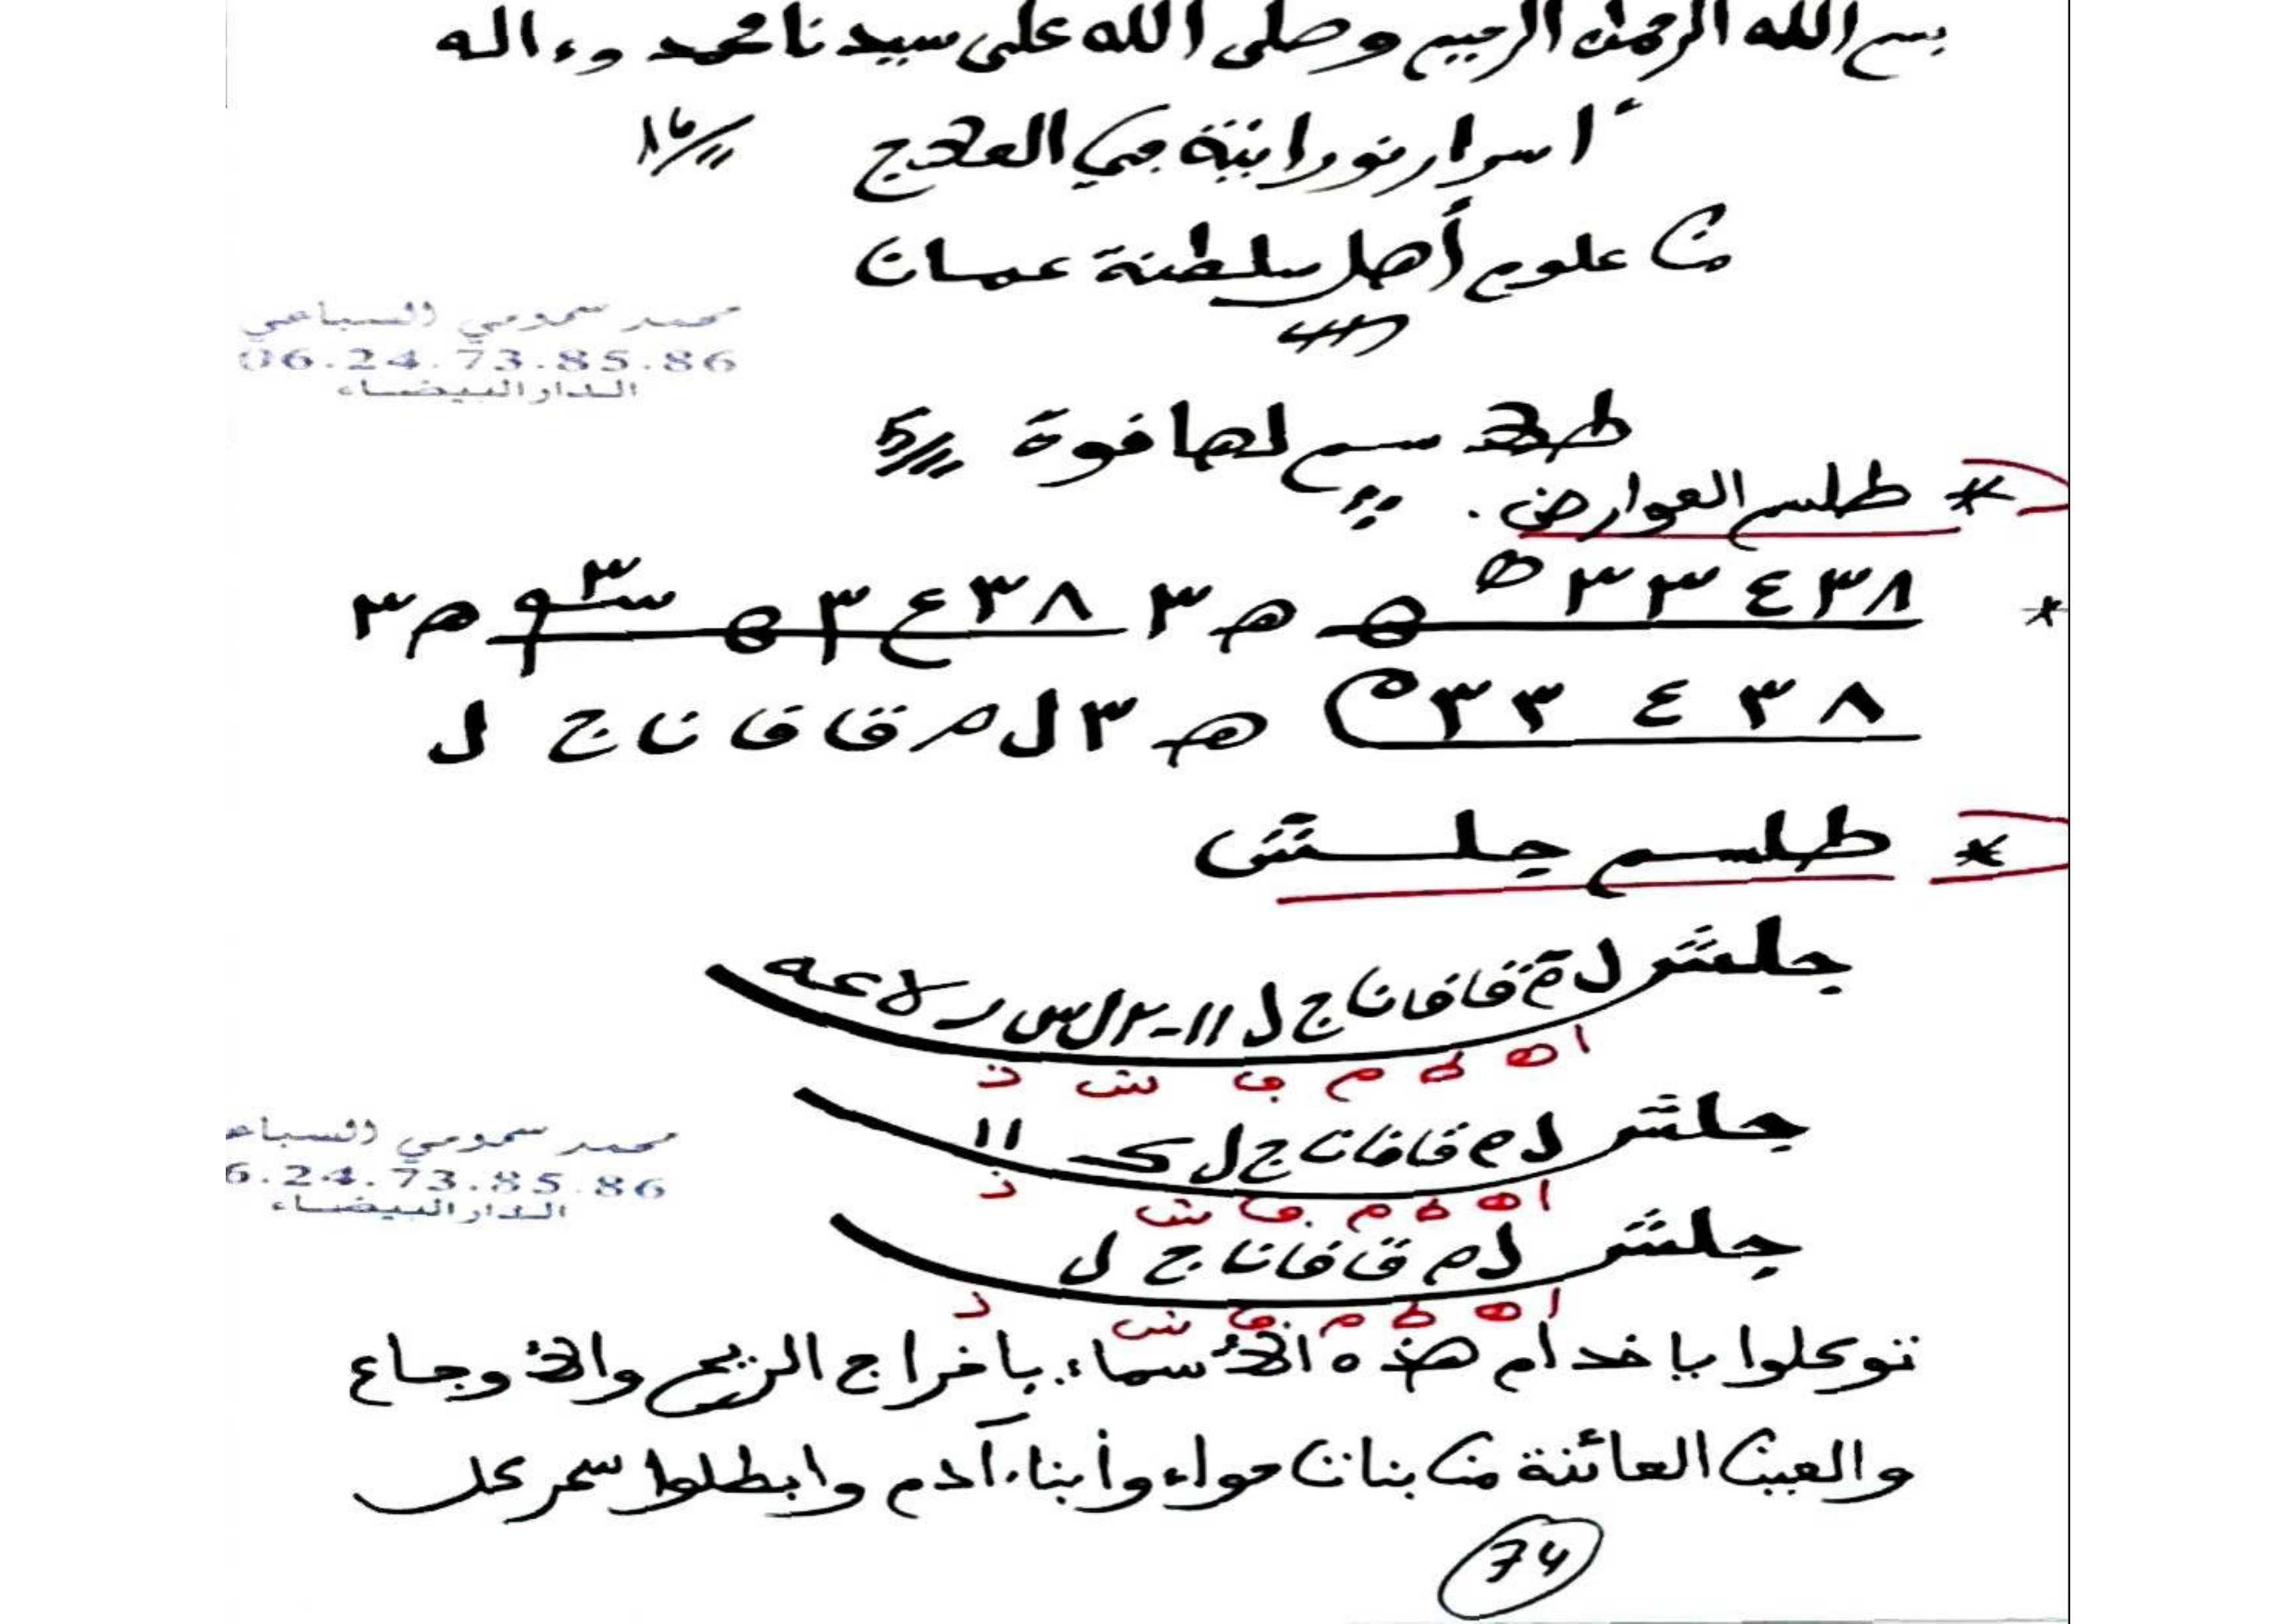 بسم الله الرحمن الرحيم وصلى الله على سيدنا محمد وءاله
أسرار نورانية في العلاج
من علوم أهل سلطنة عمان
محمد سمومي السباعي
06.24.73.85.86
الدار البيضاء
طلاسم لها قوة
* طلسم العوارض.
* ٨ ٣ ٤ ٣ ٣ ه ه ٣ ٨ ٣ ع ٣ ه ٣ م ٣
٨ ٣ ٤ ٣ ٣ ه ٣ ل م قا فا نا ج ل
* طلسم جلش
جلش ل م قا فا نا ج ل ١١-٢ ل س ر لا عه
ا ه ط م ف ش ذ
جلش ل م قا فا نا ج ل ك ١١
ا ه ط م ف ش ذ
محمد سمومي السباع
6.24.73.85.86
الدار البيضاء
جلش ل م قا فا نا ج ل
ا ه ط م ف ش ذ
توكلوا يا خدام هذه الأسماء بإخراج الريح والأوجاع
والعين العائنة من بنات حواء وأبناء آدم وابطلوا سحر كل
74